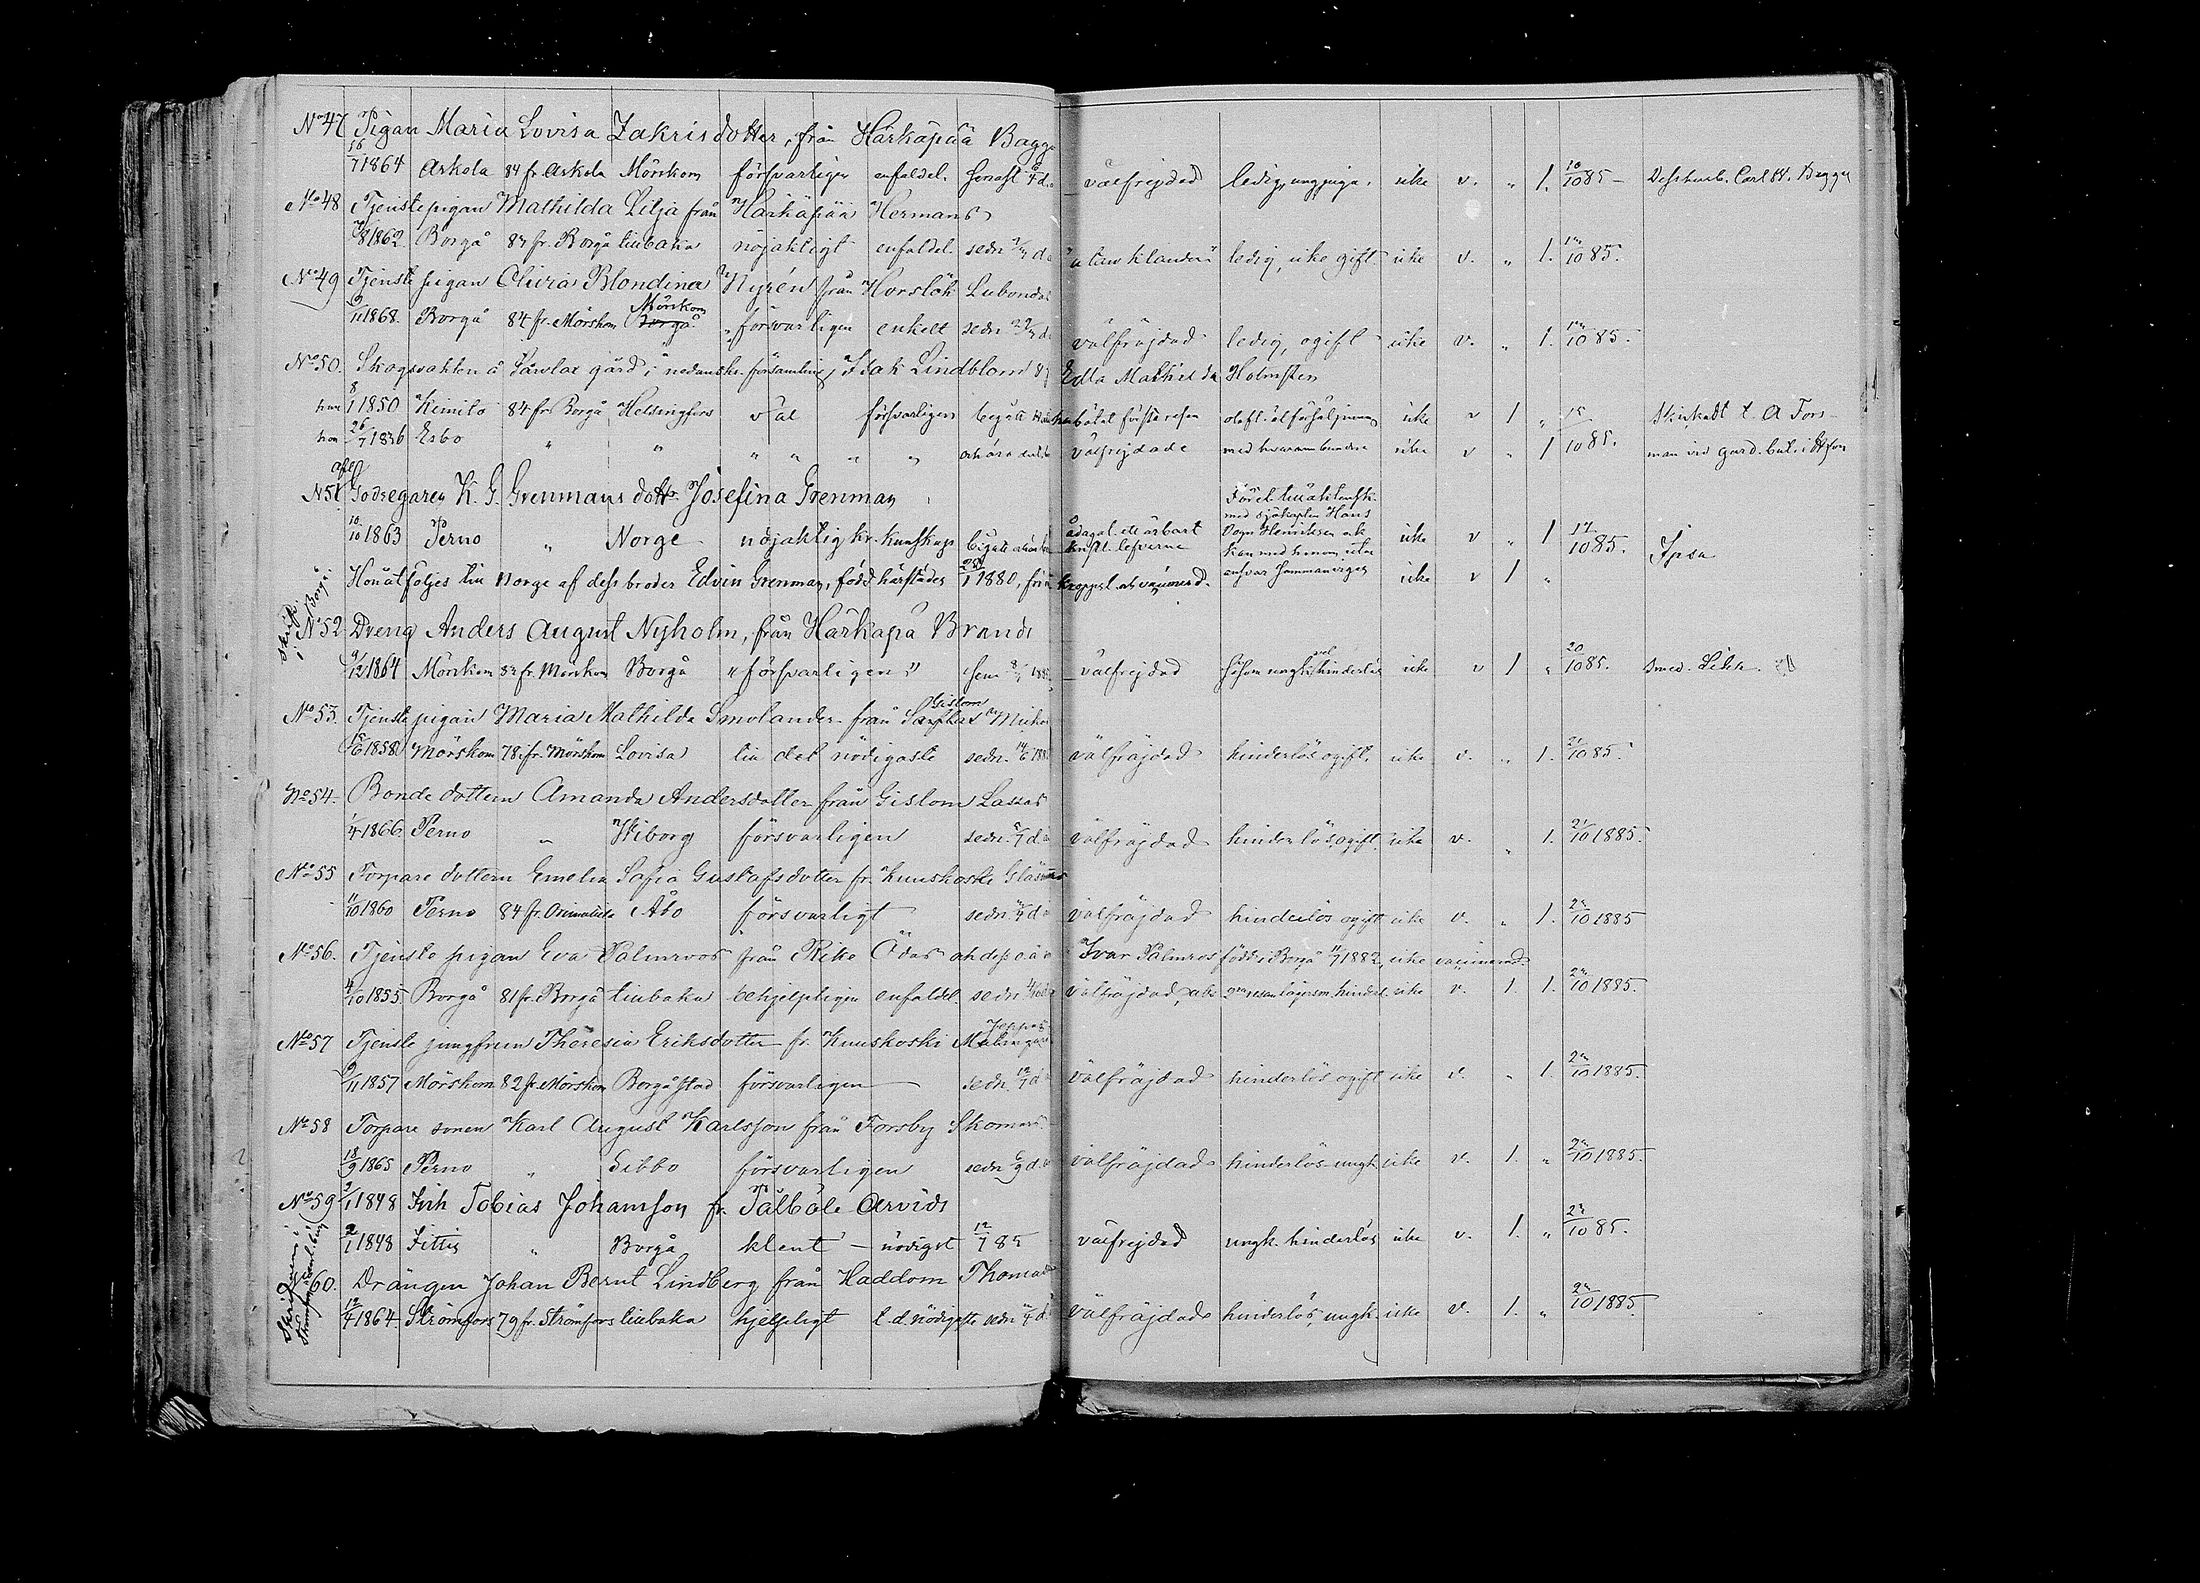 No 47 Pigan Maria Lovisa Zakrisdotter, från Härkäpää Bagga
16/7 1864 Askola 84 fr. Askola Mörskom försvarligen enfaldel. senast d. välfrejdad ledig, ung piga. icke v. " 1. 10/10 85 Dess husb. Carl H. Bagga
No 48 Tjenstepigan Mathilda Lilja från Härkäpää Hermans
/8 1862. Borgå fr. Borgå tillbaka nöjaktigt enfaldel. sedn. d. utan klander ledig, icke gift icke v. " 1. /10 85.
No 49 Tjenste pigan Olivia Blondina Nyrén från Horslök Lubondas
9/11 1868. Borgå 84 fr. Mörskom Mörskom Borgå försvarligen enkelt sedn. d. välfräjdad ledig, ogift icke v. " 1. /10 85.
No 50. Skogvakten å Sarvlax gård i nedanskr. församling Isak Lindblom & Edla Mathilda Holmsten
han 8/1 1850 Kimito 84 fr. Borgå Helsingfors väl försvarligen begått bötat första resa icke v 1 " 15/
hon 26/7 1836 Esbo " " " " " " välfrejdade med hvarann bundne icke v " 1 10 85. man vid gard. bat. i H:fors
No 51 Godsegaren K. G. Grenmans dotter Josefina Grenman
Förel. till äktensk.
med sjökapten Hans
10/10 1863 Perno " Norge nöjaktig kr. kunskap begått ådagal. ett ärbart kristl. lefverne Henriksen och kan med honom utan ansvar sammanvigas icke v " 1 17/10 85. Ipsa
Hon åtföljes till Norge af dess broder Edvin Grenman, född härstädes 28/1 1880, frisk kroppsl. och vaccinerad. icke v 1 "
skrifs. i Borgå.
No 52 Dreng Anders August Nyholm, från Härkäpä Brands
9/12 1864 Mörskom fr. Mörskom Borgå "försvarligen" sen. välfrejdad såsom ungk. väl hinderlös icke v 1 " 20/10 85. smed.
No 53. Tjenstepigan Maria Mathilda Smolander från Gislom
/6 1858 Mörskom 78 fr. Mörskom Lovisa till det nödigaste sedn. välfräjdad hinderlös ogift. icke v. " 1. 21/10 85.
No 54. Bonde dottern Amanda Andersdotter från Gislom Lassas
1/4 1866. Perno " Wiborg försvarligen sedn. d. välfräjdad hinderlös, ogift. icke v. " 1. 21/10 1885.
No 55 Torpare dottern Emelia Sofia Gustafsdotter fr. Kuuskoski
11/10 1860 Perno 84 fr. Orimattila Åbo försvarligt sedn. d. välfräjdad hinderlös ogift icke v. " 1. /10 1885
No 56. Tjenste pigan Eva Palmroos från Rike Ödas och dess o. ä. Ivar Palmros född i Borgå 1882, icke vaccinerad
4/10 1855. Borgå 81 fr. Borgå tillbaka behjelpligen enfaldel. sedn. välfräjdad, hindel. icke v. 1. 1. /10 1885.
No 57 Tjenste jungfrun Theresia Eriksdotter fr. Kuuskoski Jeppas
9/11 1857 Mörskom 82 fr. Mörskom Borgå stad försvarligen sedn. d. välfräjdad hinderlös ogift icke v. " 1. /10 1885.
No 58 Torpare sonen Karl August Karlsson från Forsby Skomars
18/9 1865 Perno " Sibbo försvarligen sedn. d. välfräjdad hinderlös ungk. icke v. 1. " /10 1885.
No 59 2/1 1848 Inh Tobias Johansson fr. Tålböle Arvids
2/1 1848 Iittis " Borgå klent – nödigst 12/7 85 välfrejdad ungk. hinderlös icke v. 1. " /10 85.
No 60. Drängen Johan Bernt Lindberg från Haddom Thomas
12/4 1864. Strömfors 79 fr. Strömfors tillbaka hjelpligt t. d. nödigste sedn. d. välfräjdad hinderlös, ungk. icke v. 1. " /10 1885